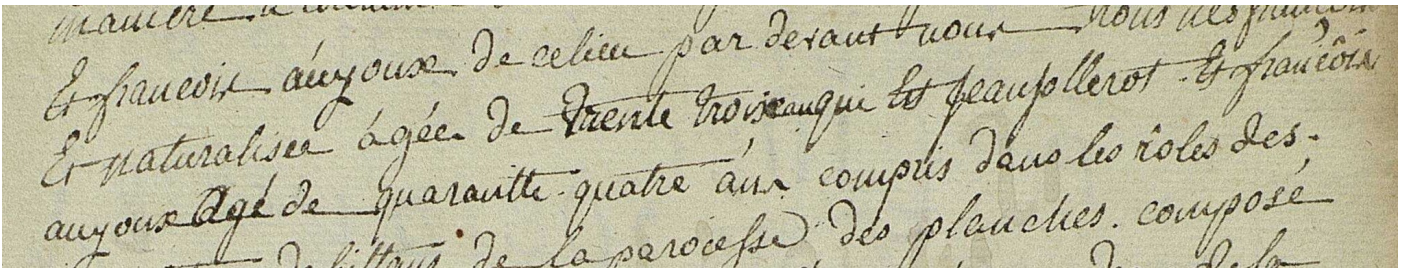 maniere
Et francois anyoux de celieu par devant nous tous nés francois
Et naturalisés agée de trente trois ans qui Est jean jollerot Et francois
anyoux agé de quarantte quatre ans compris dans les roles des
habittans de la paroesse des planches composé
de la